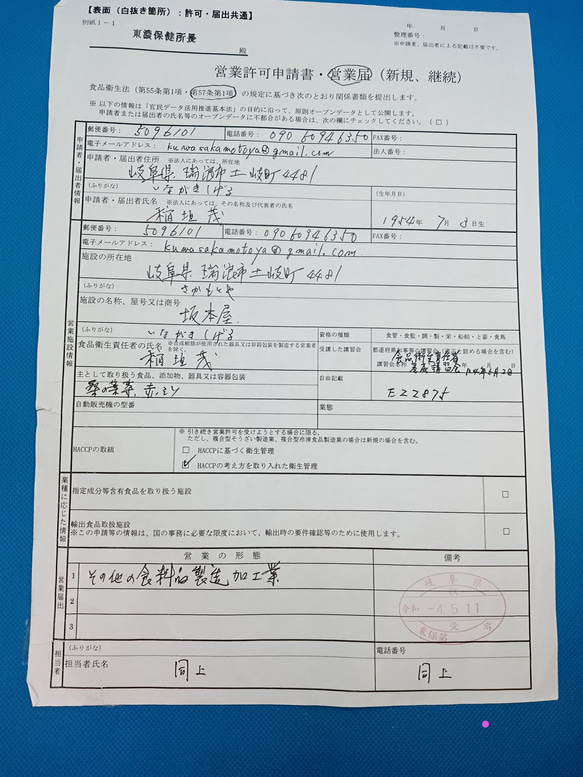 【表面（白抜き箇所）：許可・届出共通】
別紙1－1
年　月　日
整理番号：
※申請者、届出者による記載は不要です。
東濃保健所長　殿
営業許可申請書・営業届（新規、継続）
食品衛生法（第55条第1項・第57条第1項）の規定に基づき次のとおり関係書類を提出します。
※ 以下の情報は「官民データ活用推進基本法」の目的に沿って、原則オープンデータとして公開します。
申請者または届出者の氏名等のオープンデータに不都合がある場合は、次の欄にチェックしてください。（□）
申請者・届出者情報
郵便番号：5096101　電話番号：09060946350　FAX番号：
電子メールアドレス：kuwasakamotoya@gmail.com　法人番号：
申請者・届出者住所　※法人にあっては、所在地
岐阜県瑞浪市土岐町4481
（ふりがな）いながきしげる　（生年月日）
申請者・届出者氏名　※法人にあっては、その名称及び代表者の氏名
稲垣茂　1954年7月3日生
営業施設情報
郵便番号：5096101　電話番号：09060946350　FAX番号：
電子メールアドレス：kuwasakamotoya@gmail.com
施設の所在地
岐阜県瑞浪市土岐町4481
（ふりがな）さかもとや
施設の名称、屋号又は商号
坂本屋
（ふりがな）いながきしげる　資格の種類　食管・食監・調・製・栄・船舶・と畜・食鳥
食品衛生責任者の氏名　※合成樹脂が使用された器具又は容器包装を製造する営業者を除く。　受講した講習会　都道府県知事等の講習会（適正と認める場合を含む）
稲垣茂　講習会名称　年　月　日
主として取り扱う食品、添加物、器具又は容器包装　自由記載
桑の葉茶、赤シソ　E22875
自動販売機の型番　業態
HACCPの取組
※ 引き続き営業許可を受けようとする場合に限る。
ただし、複合型そうざい製造業、複合型冷凍食品製造業の場合は新規の場合を含む。
□ HACCPに基づく衛生管理
☑ HACCPの考え方を取り入れた衛生管理
業種に応じた情報
指定成分等含有食品を取り扱う施設　□
輸出食品取扱施設　□
※この申請等の情報は、国の事務に必要な限度において、輸出時の要件確認等のために使用します。
営業届出
営業の形態　備考
1　その他の食料品製造加工業
2
3
岐阜県
令和 -4.5.11
担当者
（ふりがな）　電話番号
担当者氏名　同上　同上